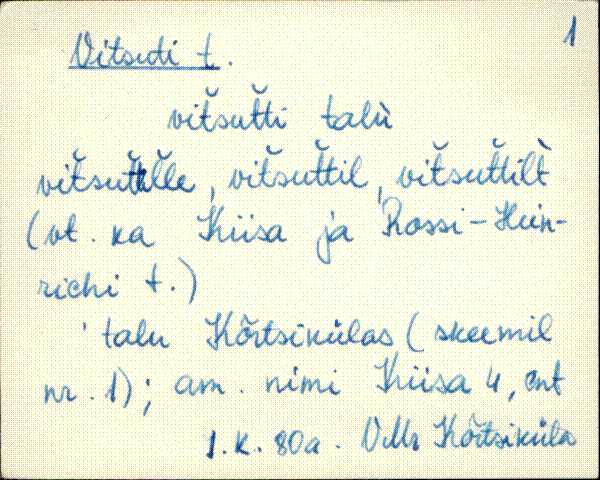 1
Vitsuti t.
vit̆sut̆ti talù
vit̆sut̆tille, vit̆sut̆til, vit̆sut̆tilt̀
(vt. ka Kiisa ja Rossi-Hein-
richi t.)
' talu Kõrtsikülas (skeemil
nr. 1); am. nimi Kiisa 4, ent
J. K. 80a. VMr Kõrtsiküla